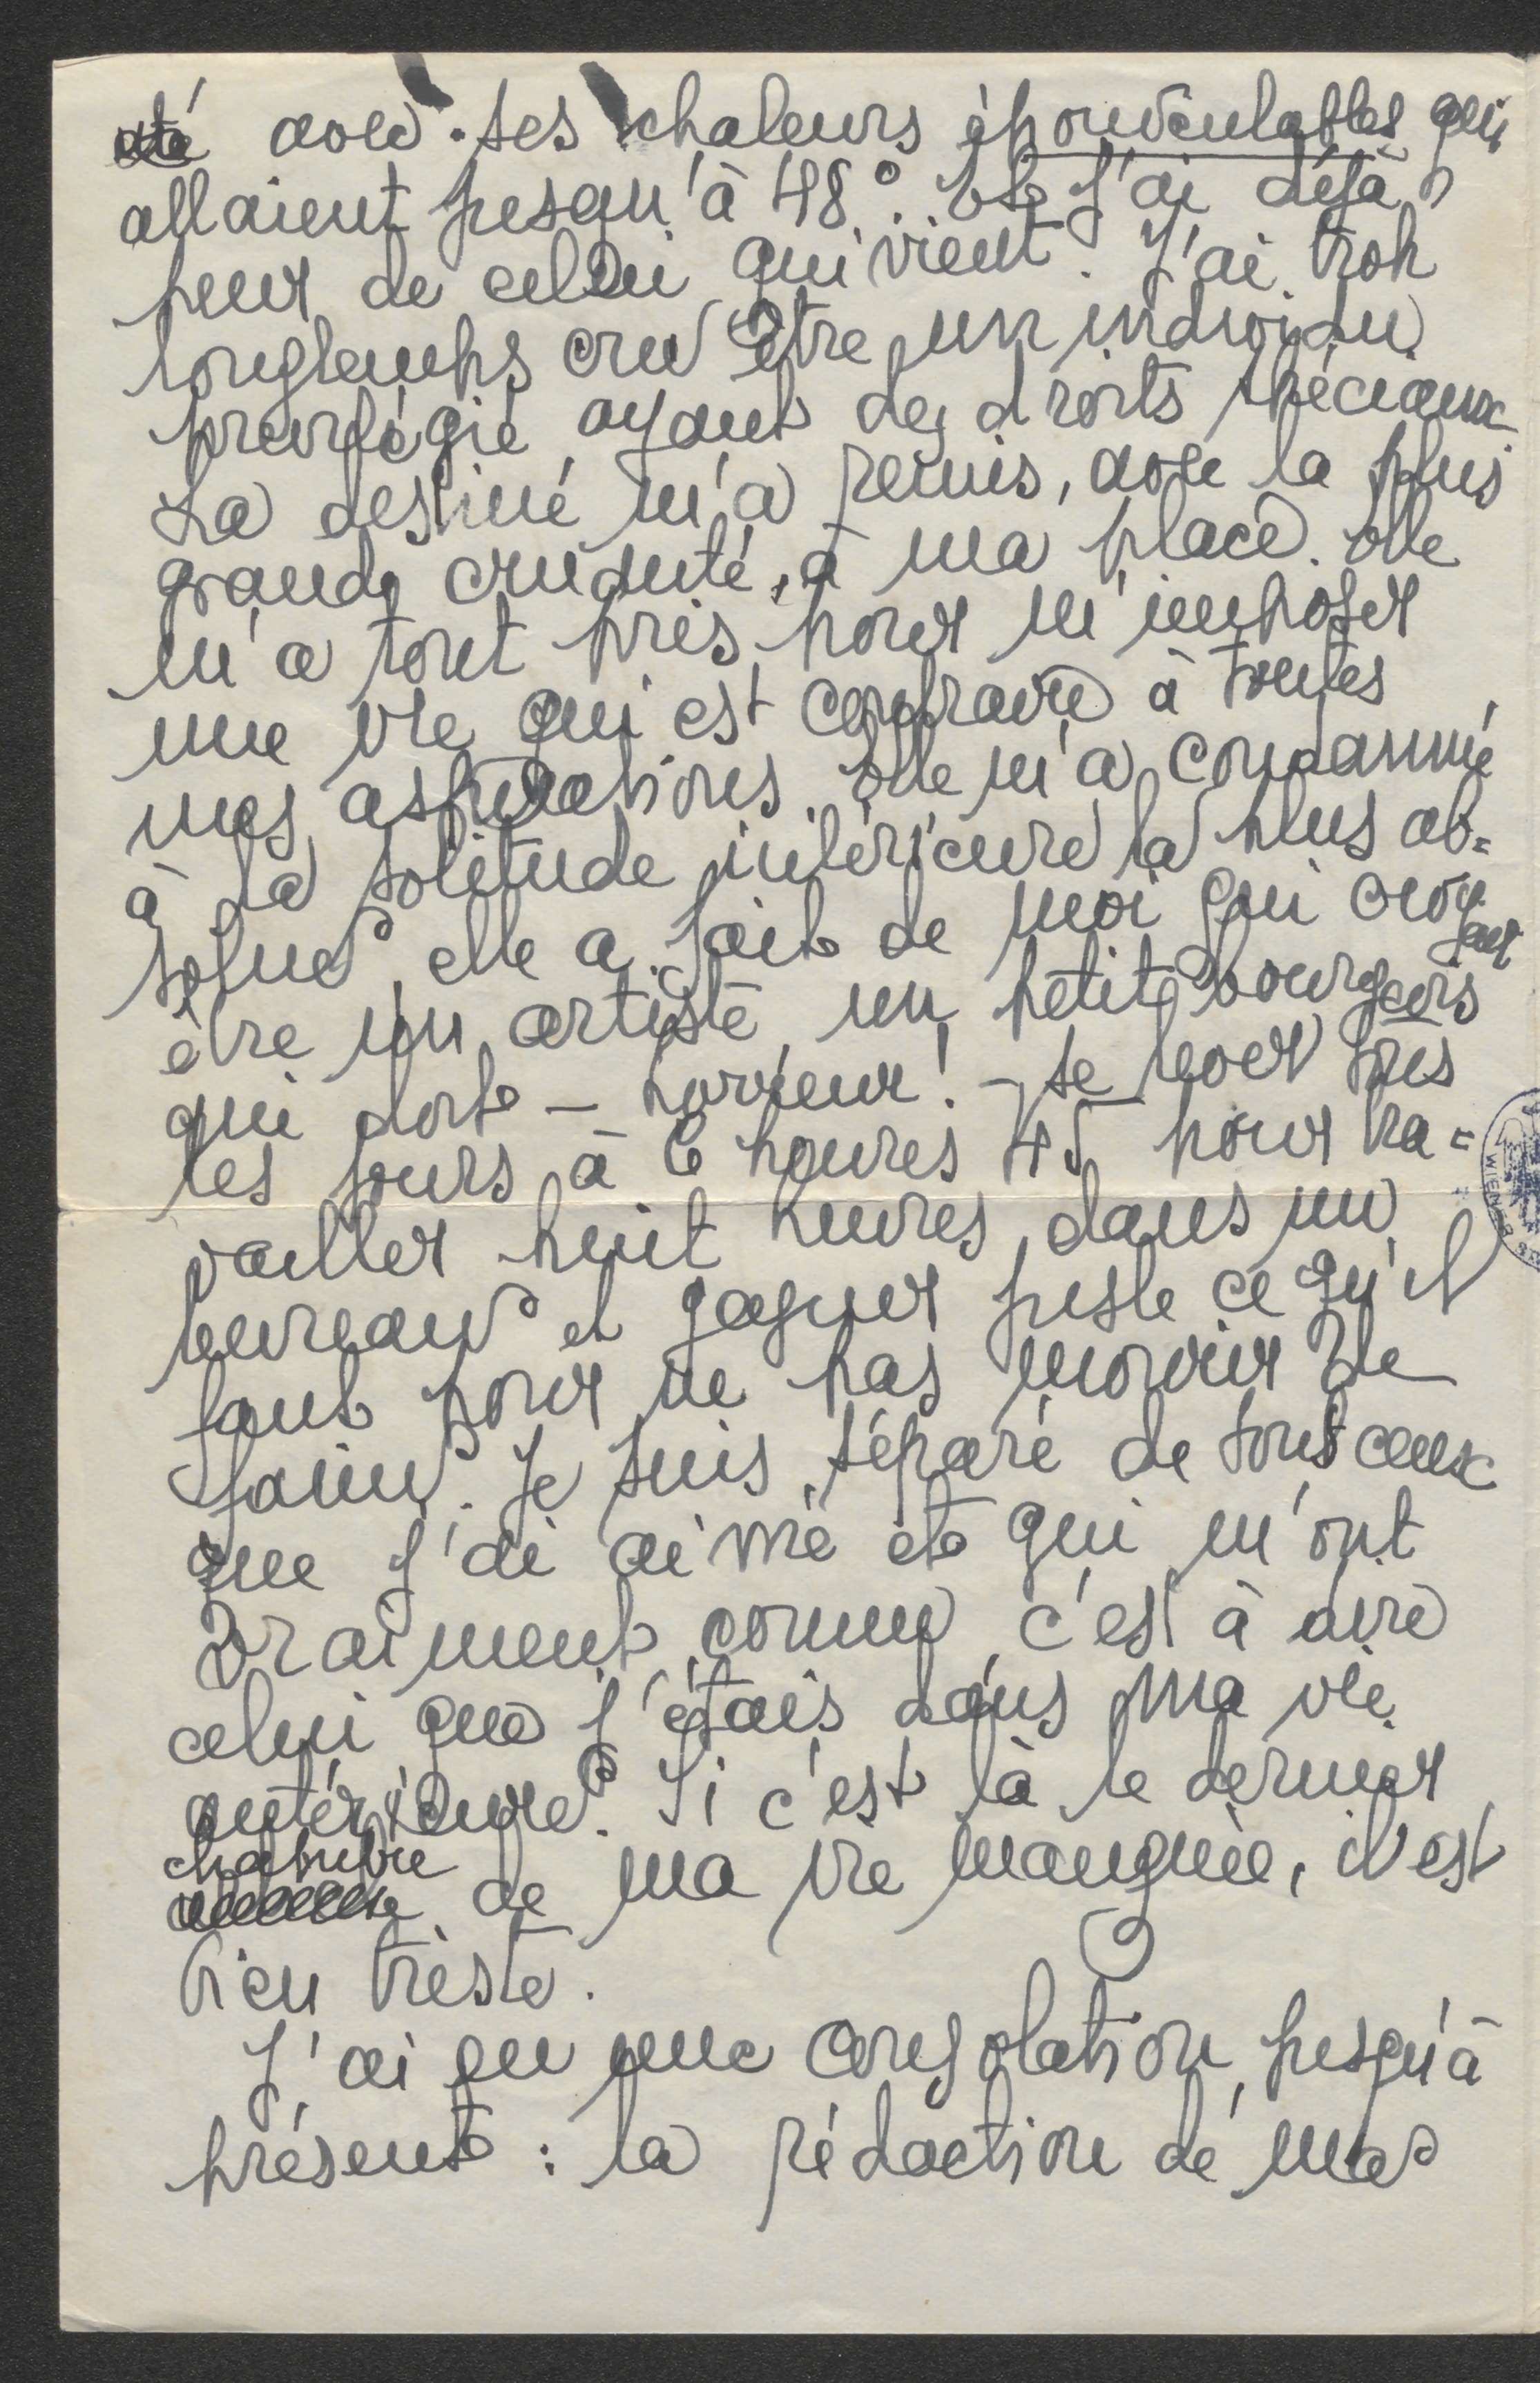 été avec ses chaleurs épouventables qui
allaient jusqu'à 48°. Et j'ai déjà
peur de celui qui vient. J'ai trop
longtemps cru être un individu
privilégié ayant des droits spéciaux.
La destiné m'a remis, avec la plus
grande crudauté, à ma place. Elle
m'a tout pris pour m'imposer
une vie qui est contraire à toutes
mes aspirations. Elle m'a condamné
à la solitude intérieure la plus ab=
solue, elle a fait de moi qui croyait
être un artiste un petit bourgeois
qui doit – horreur! – se lever tous
les jours à 6 heures 45 pour tra=
vailler huit heures dans un
bureau et gagner juste ce qu'il
faut pour ne pas mourir de
faim. Je suis séparé de tous ceux
que j'ai aimé et qui m'ont
vraiment connu, c'est à dire
celui que j'étais dans ma vie
antérieure. Si c'est là le dernier
chapitre
de ma vie manquée, il est
bien triste.
J'ai eu une consolation jusqu'à
présent: la rédaction de mes
WIENER